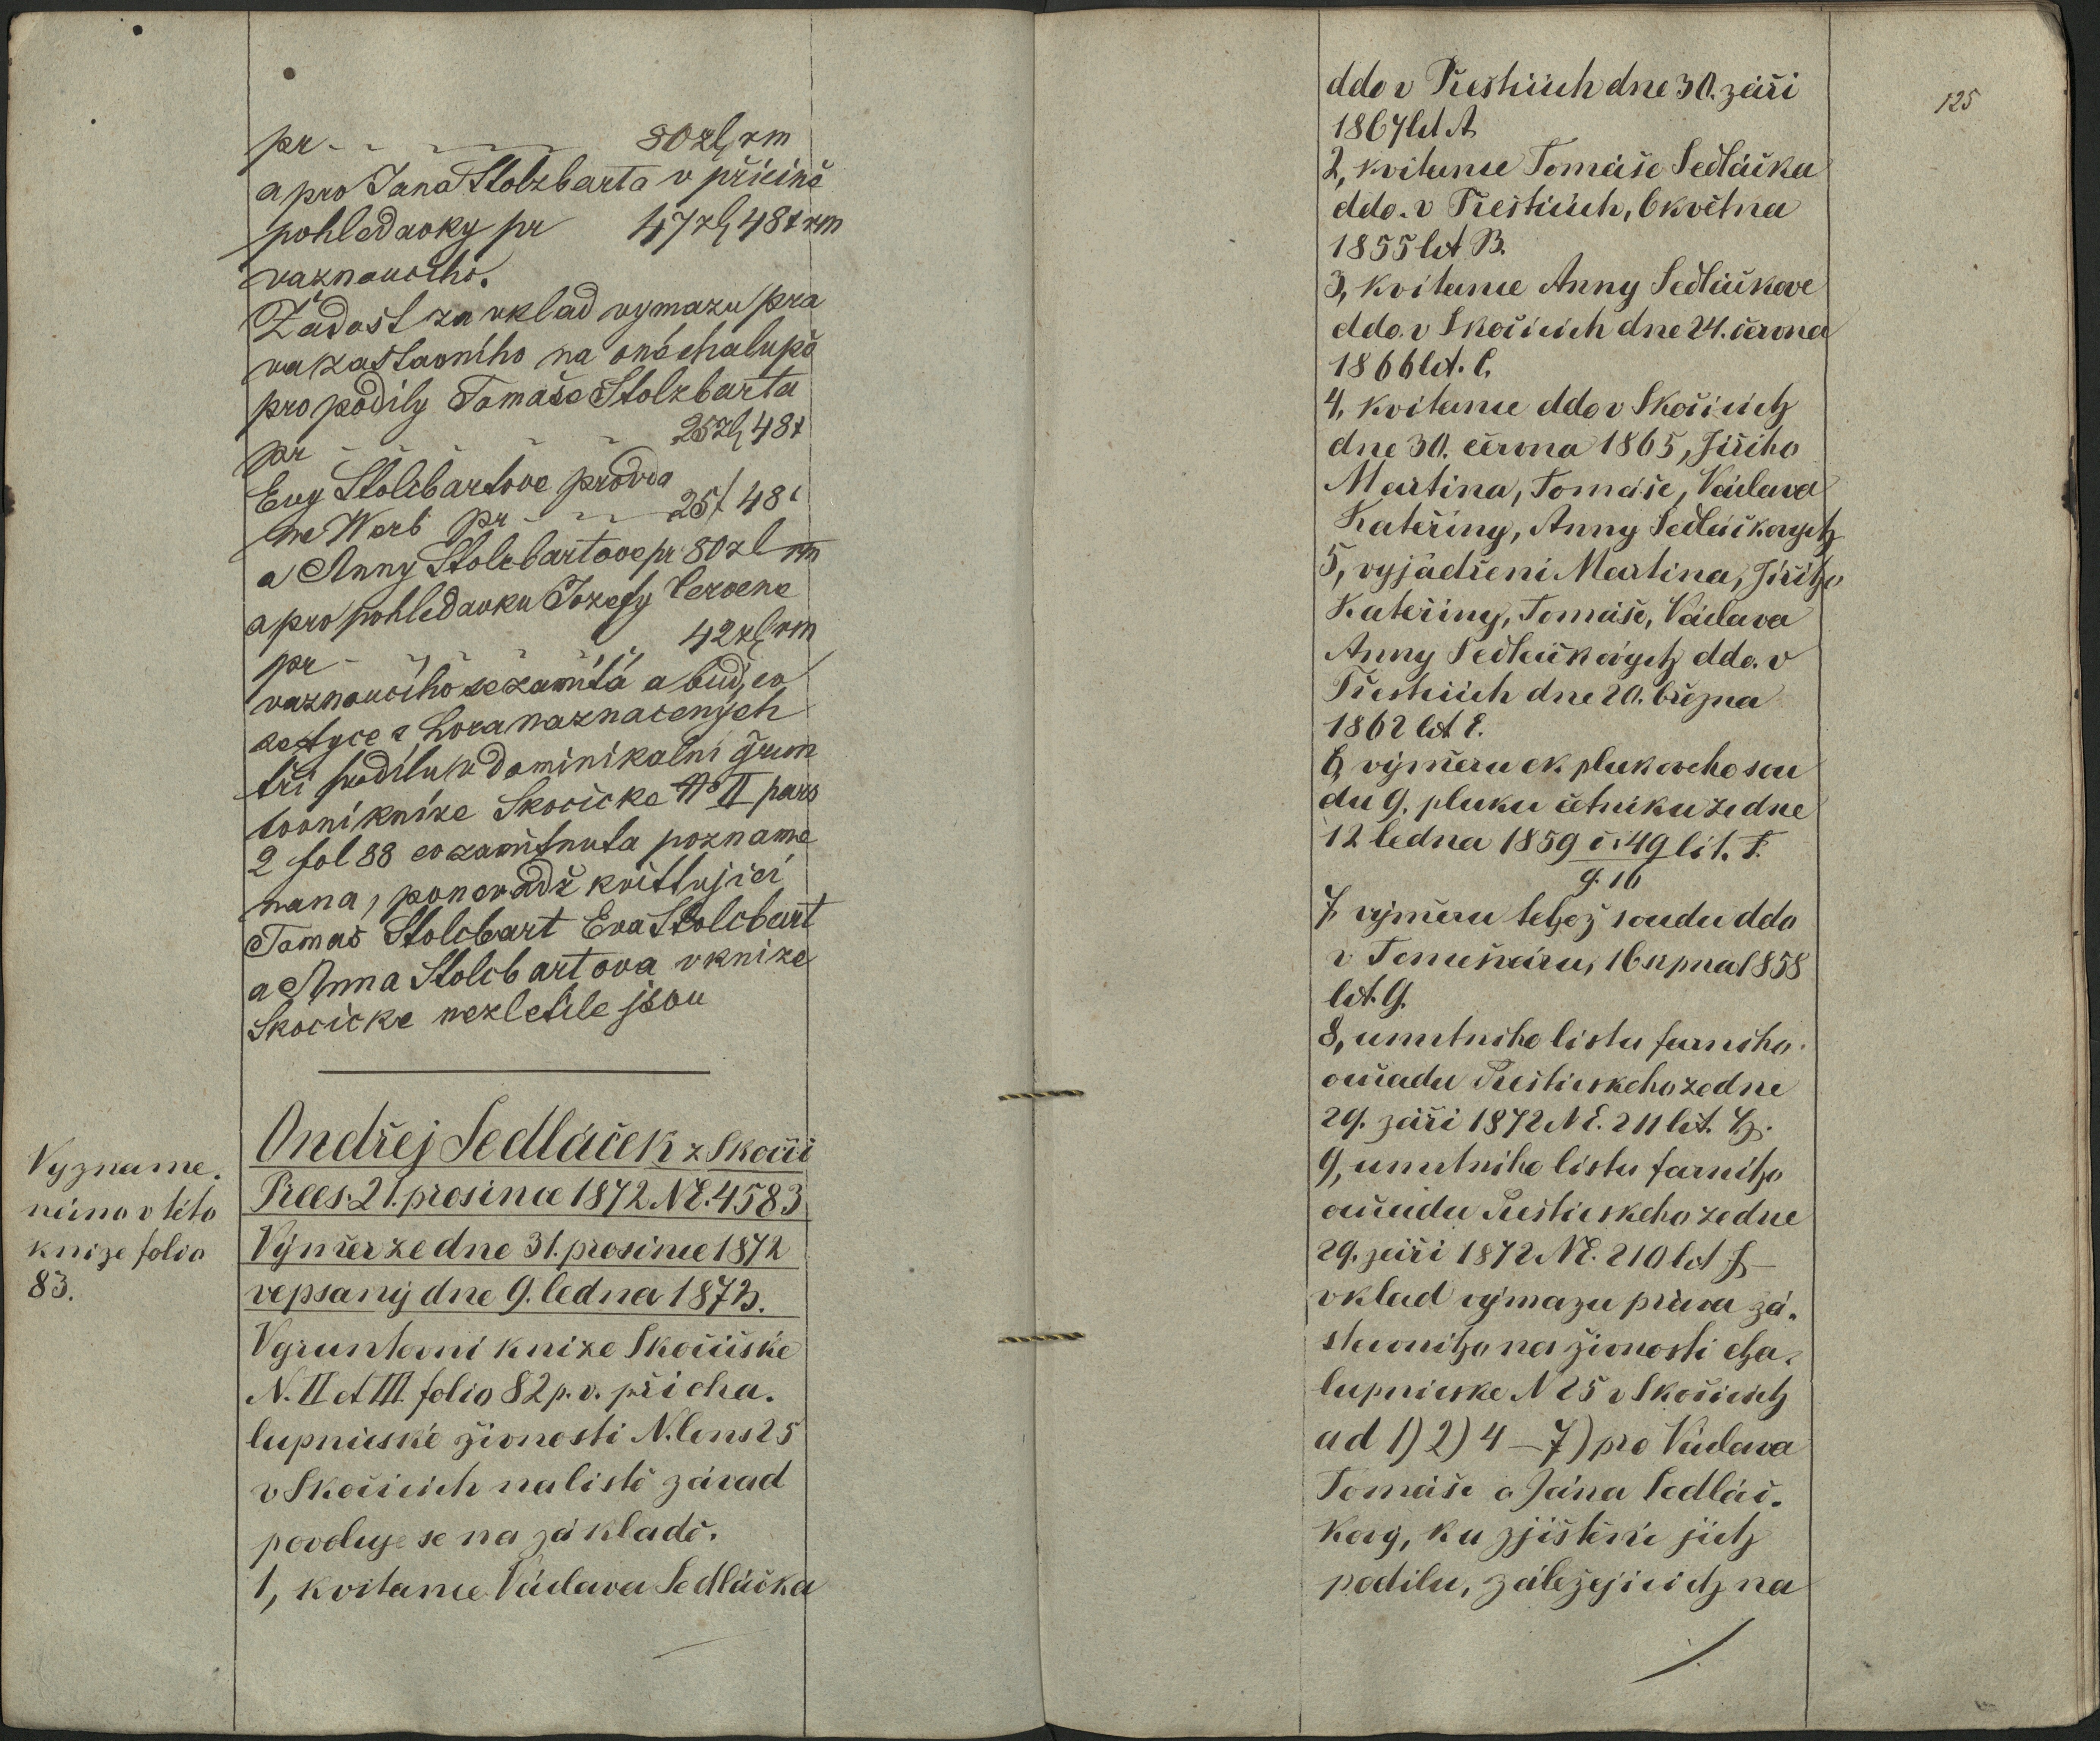 pr - - - - 80 zl rm
a pro Jana Stolzbarta v přičině
pohledavky pr 47 zl 48 x rm
vaznoucího.
Žádost za vklad vymazu pra
va zastavního na oné chalupě
pro podily Tomaše Stolzbarta
pr - - - - 25 zl 48 x
Evy Stolcbartove provda
ne Werb pr - - 25 f 48 x
a Anny Stolcbartove pr 80 zl rm
a pro pohledavku Jozefy Cervene
pr - - - - 42 zl rm
vaznoucího se zamítá a bud, co
se tyce z hora naznacenych
tří podilu v dominikalni grun
tovni knize Skocicke No II pars
2 fol 88 co zamítnuta pozname
nana, ponevadž kvittujicí
Tomas Stolcbart Eva Stolcbart
a Anna Stolcbartova v knize
Skocicke nezletile jsou
Vyzname.
náno v této
knize folio
83.
Ondřej Sedláček z Skočic
Praes. 21. prosince 1872 NE. 4583
Výměr ze dne 31. prosince 1872
vepsaný dne 9. ledna 1873.
V gruntovni knize Skočické
N. II et III. folio 82 p. v. při cha.
lupnické živnosti N. Cons 25
v Skočicich na listě závad
povoluje se na základě.
1, kvitance Václava Sedláčka
125
ddo v Přesticich dne 30. záři
1867 lit A
2, kvitance Tomáše Sedláčka
ddo. v Přesticich, 6 května
1855 lit B.
3, kvitance Anny Sedláčkove
ddo. v Skočicich dne 24. června
1866 lit. C.
4, kvitance ddo v Skočicich
dne 30. června 1865, Jiřiho
Martina, Tomáše, Václava
Kateřiny, Anny Sedláčkových
5, vyjádřeni Martina, Jiřiho
Kateřiny, Tomáše, Václava
Anny Sedláčkových ddo. v
Přesticich dne 20. března
1862 lit E.
6, výměru ck plukovcho sou
du 9. pluku četníku ze dne
12 ledna 1859 č: 49 lit. F.
g. 16
7, výměru tehož soudu ddo
v Temešváru, 16 srpna 1858
lit. G.
8, umrtniho listu farniho
ouřadu Přestickeho ze dne
29. záři 1872 NE. 211 lit. H.
9, umrtniho listu farniho
ouřadu Přestickeho ze dne
29. záři 1872 NE. 210 lit J. -
vklad výmazu práva zá.
stavniho na živnosti cha.
lupnicke N 25 v Skočicich
ad 1) 2) 4 - 7) pro Václava
Tomáše a Jána Sedláč.
kovy, ku zjištěni jich
podilu, záležejicich na